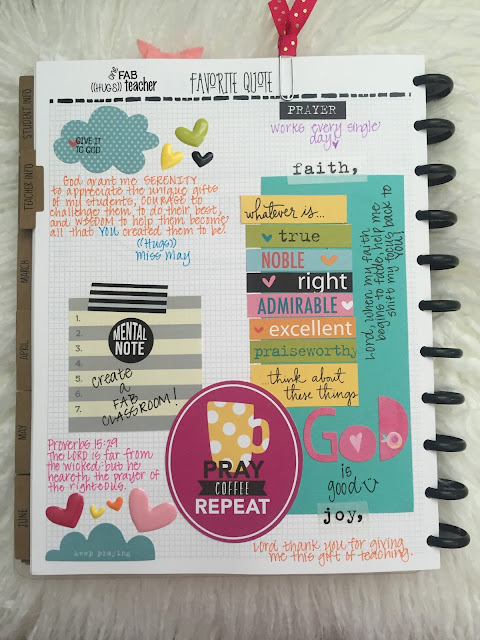 one FAB
((HUGS)) teacher
FAVORITE QUOTE
STUDENT INFO
TEACHER INFO
MARCH
APRIL
MAY
JUNE
GIVE IT
TO GOD
PRAYER
WORKS EVERY SINGLE
DAY!
God grant me SERENITY
to appreciate the unique gifts
of my students, COURAGE to
challenge them to do their best,
and WISDOM to help them become
all that YOU created them to be!
((Hugs))
Miss May
faith,
whatever is...
true
NOBLE
right
ADMIRABLE
excellent
praiseworthy
...think about
these things.
Lord, when my faith
begins to fade, help me
shift my focus back to
YOU!
1.
2.
3.
4.
5.
6.
7.
MENTAL
NOTE
create
a
FAB
CLASSROOM!
Proverbs 15:29
The LORD is far from
the wicked: but he
heareth the prayer of
the righteous.
PRAY
COFFEE
REPEAT
GOD
is
good
joy,
keep praying
Lord thank you for giving
me this gift of teaching.